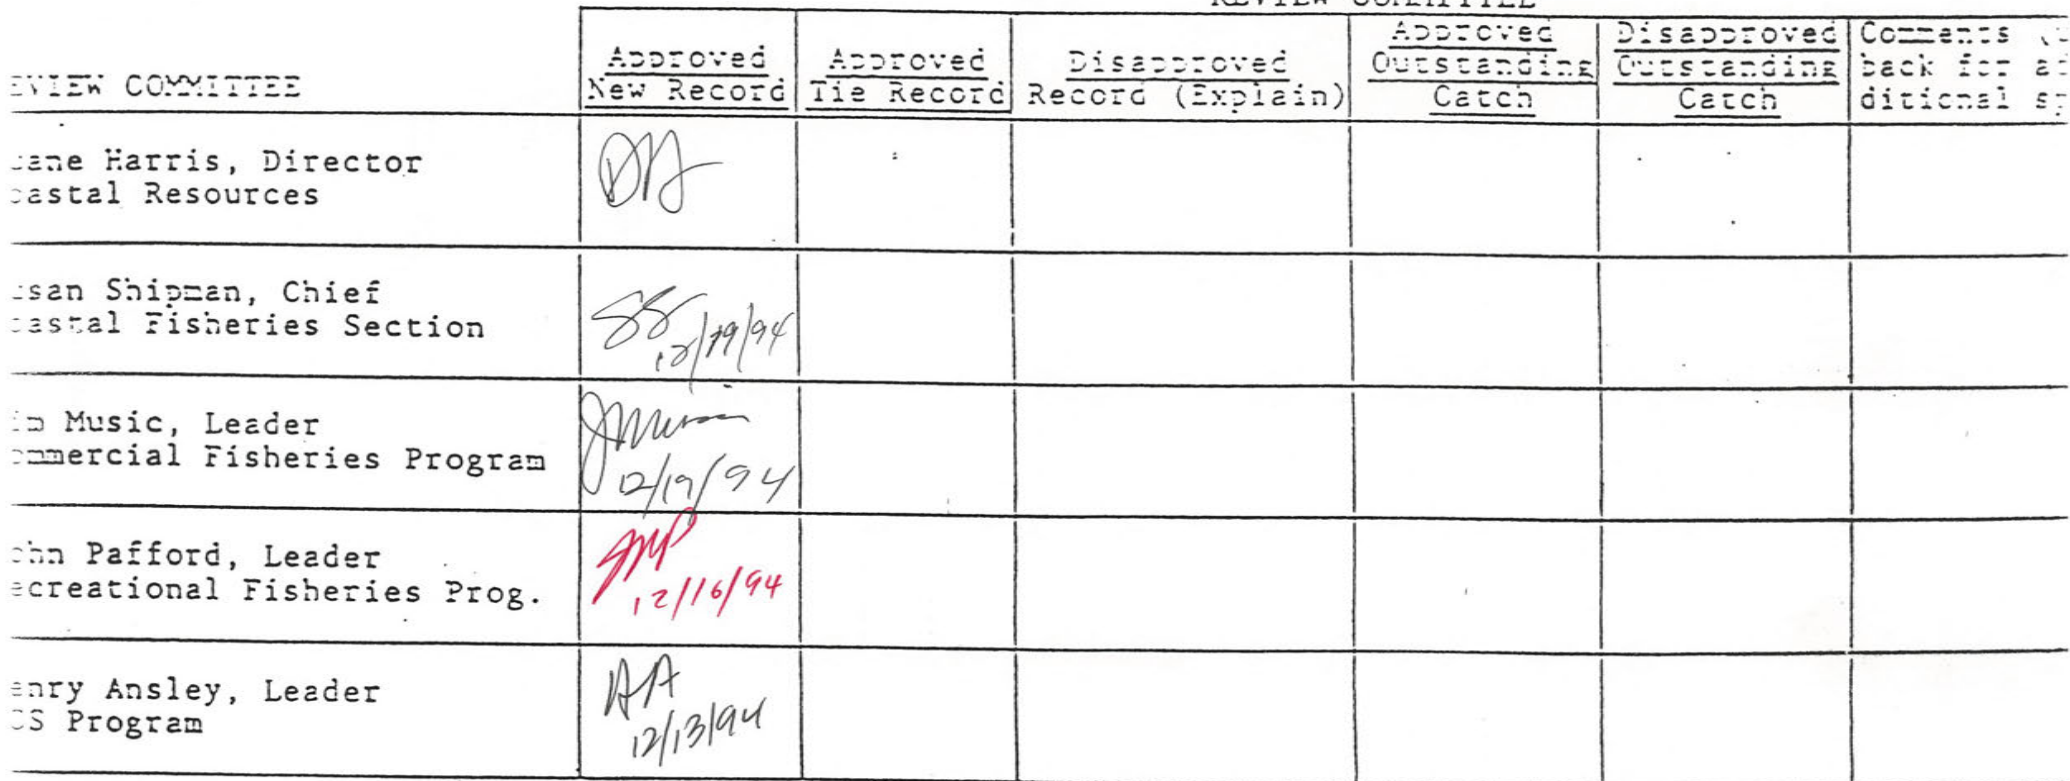 REVIEW COMMITTEE
EVIEW COMMITTEE
Approved
New Record
Approved
Tie Record
Disapproved
Record (Explain)
Approved
Outstanding
Catch
Disapproved
Outstanding
Catch
Comments
back for ad
ditional sp
uane Harris, Director
oastal Resources
DH
usan Shipman, Chief
oastal Fisheries Section
SS
12/19/94
im Music, Leader
ommercial Fisheries Program
JMusic
12/19/94
ohn Pafford, Leader
ecreational Fisheries Prog.
JMP
12/16/94
enry Ansley, Leader
CS Program
HA
12/13/94